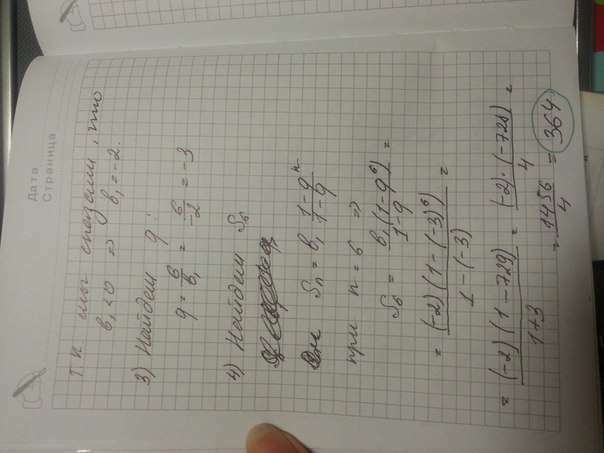 Дата
Страница
Т.К. мы сказали, что
b₁<0 ⇒ b₁=-2.
3) Найдем q:
q = 6/b₁ = 6/-2 = -3
4) Найдем S₆
Sₙ = b₁ (1-qⁿ)/(1-q)
при n=6 ⇒
S₆ = b₁(1-q⁶)/(1-q) =
= (-2)(1-(-3)⁶)/(1-(-3)) =
= (-2)(1-729)/(1+3) = (-2)·(-728)/4 =
= 1456/4 = 364